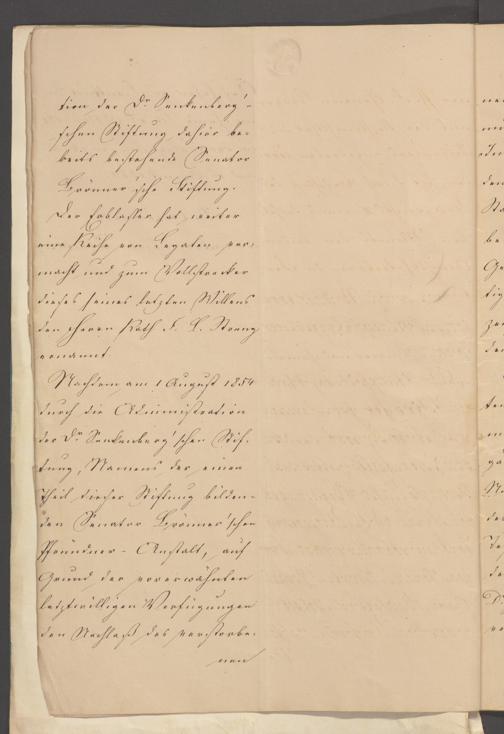 tion der Dr Senkenberg'-
schen Stiftung dahier be-
reits bestehende Senator
Brönner'sche Stiftung.
Der Erblasser hat weiter
eine Reihe von Legaten ver-
macht und zum Vollstrecker
dieses seines letzten Willens
den Herrn Rath F. L.
ernannt.
Nachdem am 1 August 1854
durch die Administration
der Dr Senkenberg'schen Stif-
tung, Namens der einen
Theil dieser Stiftung bilden-
den Senator Brönner'schen
Pfründner-Anstalt, auf
Grund der vorerwähnten
letztwilligen Verfügungen
den Nachlaß des verstorbe-
nen